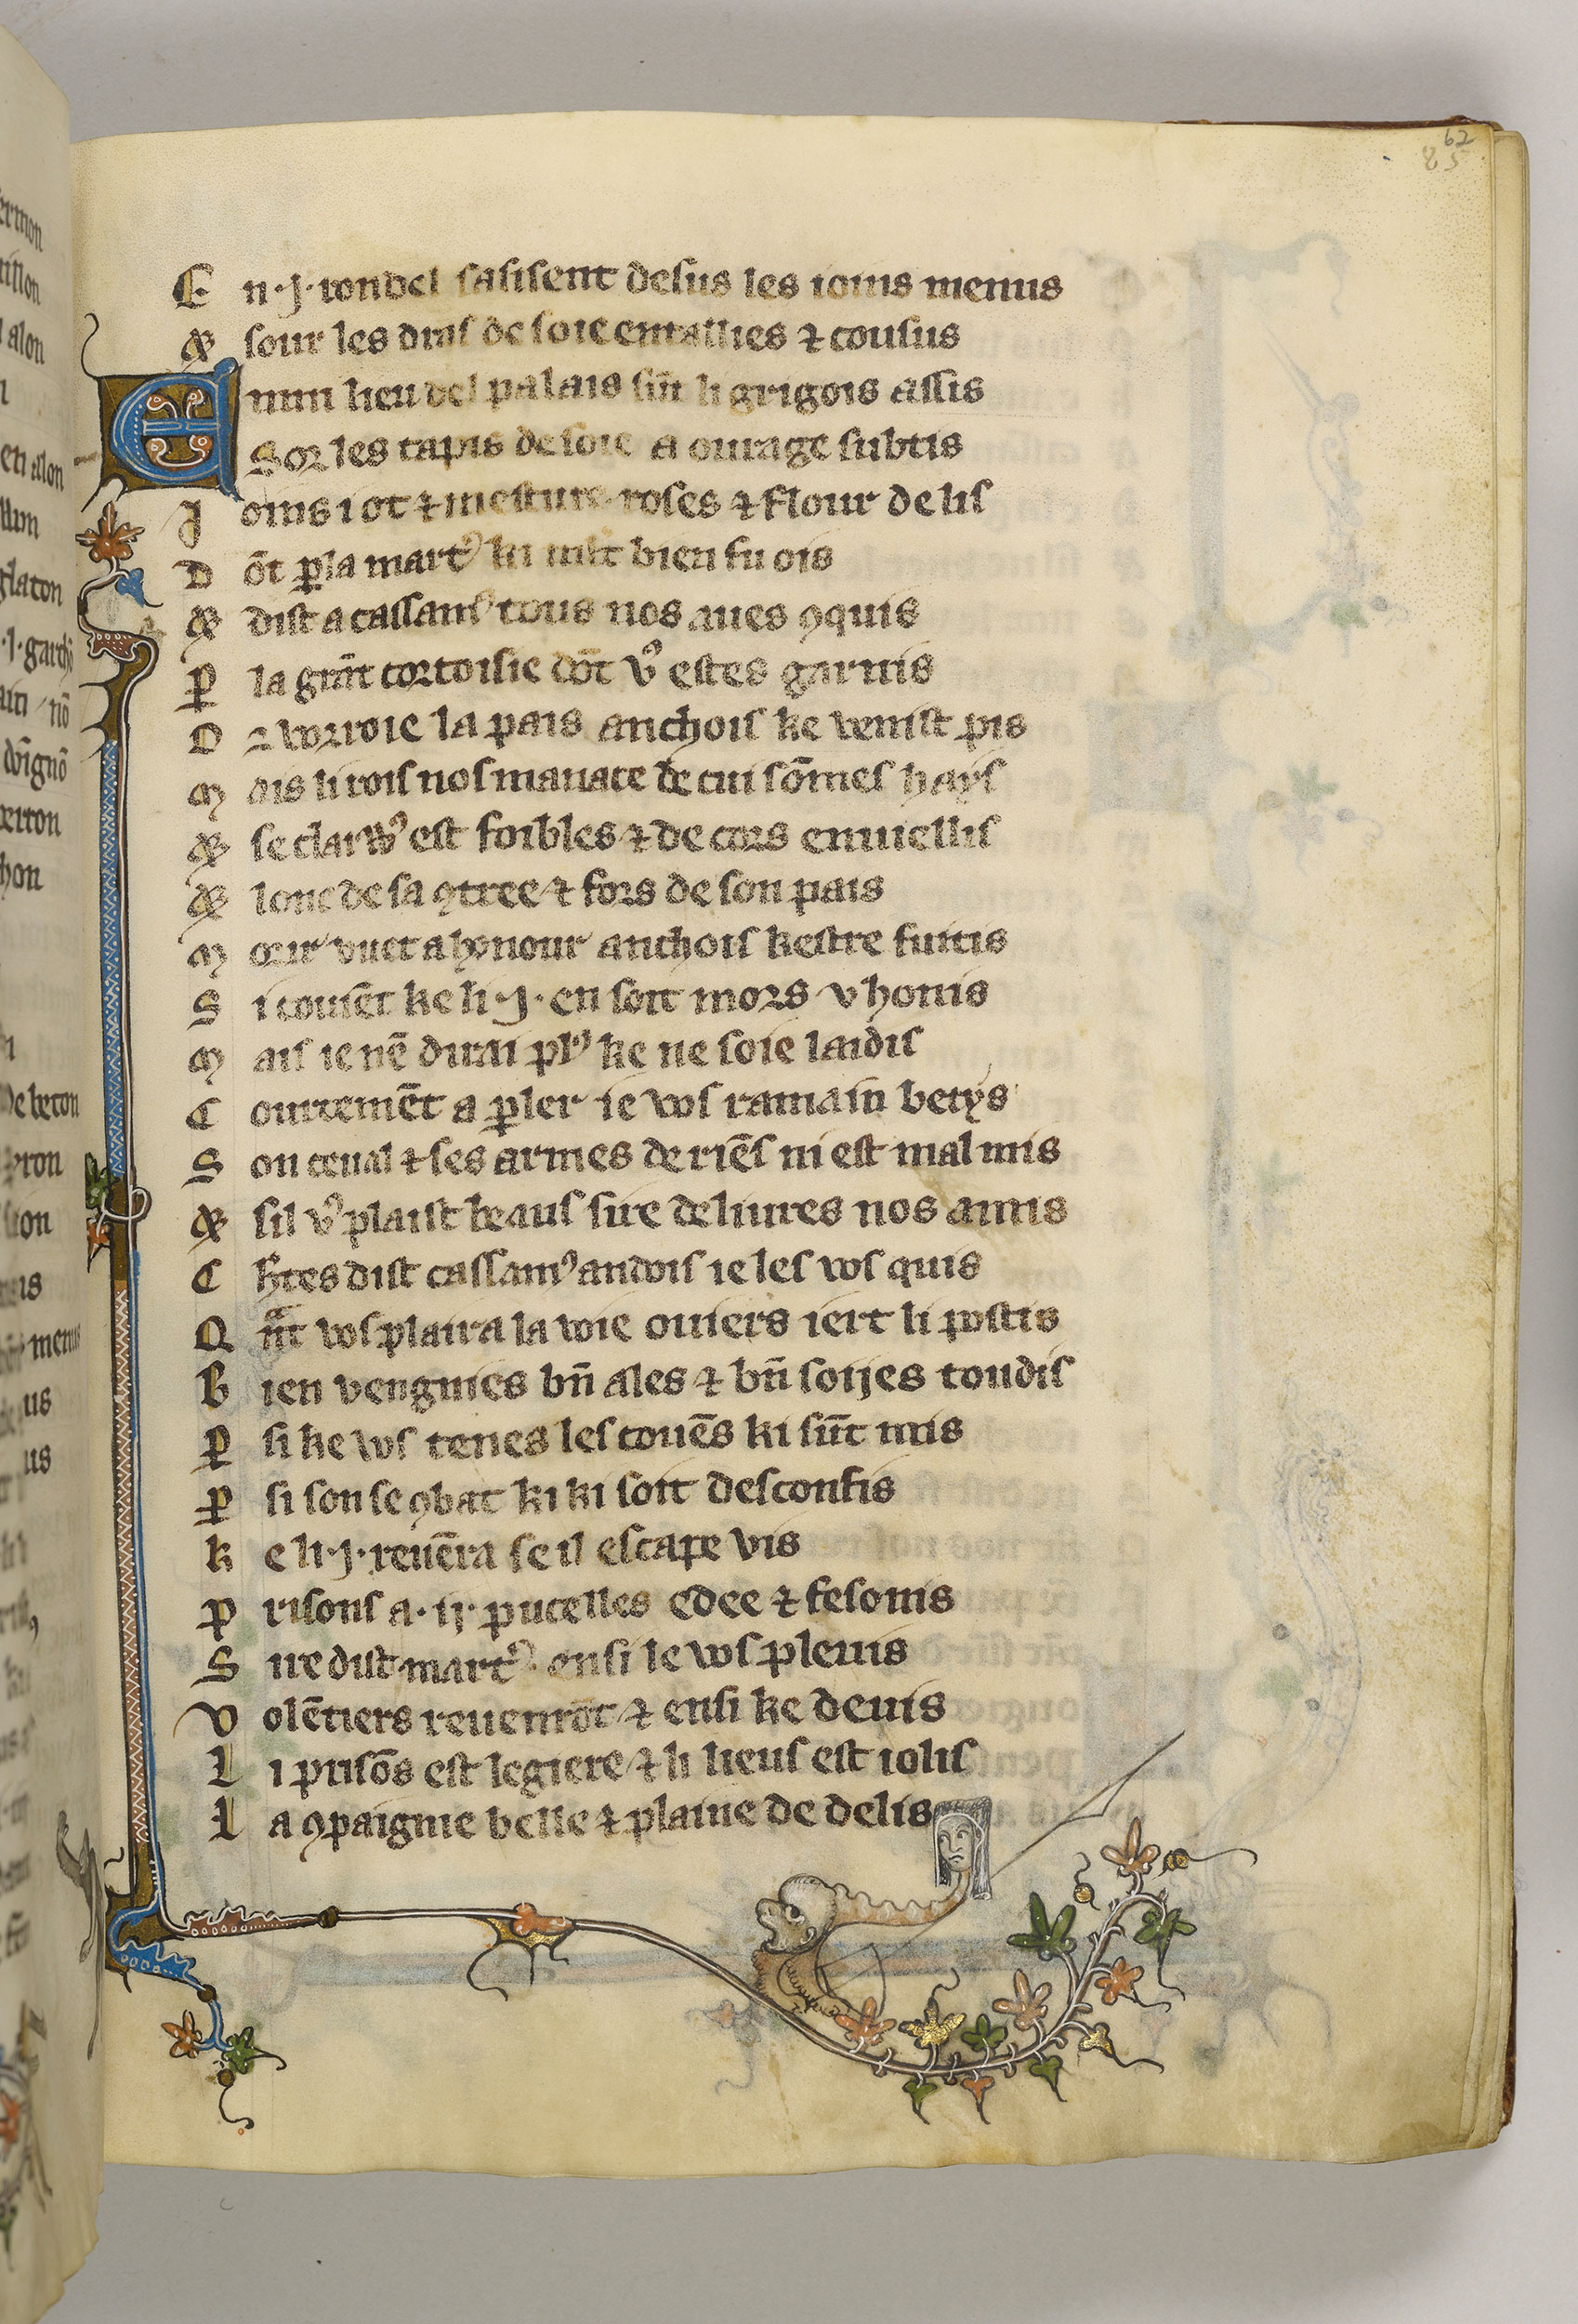 62
85
E n · j · rondel sasisent desus les ioins menus
& sour les dras de soie entallies ⁊ cousus
E nmi lieu del palais sūt li grigois assis
Sor les tapis de soie a ouurage subtis
J oins i ot ⁊ mesture roses ⁊ flour de lis
D ōt ꝑ la mart' ki mlt bien fu ois
& dist a cassam' tous nos aues ꝯquis
P la grāt cortoisie dōt v' estes garnis
D 
M ais li rois nos manace de cui sōmes hays
& se clarw' est foibles ⁊ de cors enuiellis
& lonc de sa ꝯtree ⁊ fors de son pais
M ceur vuet a honour anchois kestre fuitis
S i couiēt ke li · j · en soit mors v honis
M ais ie nē dirai pl' ke ne soie laidis
C ourtemēt a ꝑler ie vos ramain betys
S on ceual ⁊ ses armes de riēs ni est mal mis
& sil v' plaist beaus sire deliures nos amis
C htes dist cassam' andois ie les vos quis
Q nt vos plaira la voie ouiers iert li postis
B ien vengnies bn̄ ales ⁊ bn̄ soijes toudis
P si ke vos tenes les couēs ki sūt mis
P si son se ꝯbat ki ki soit desconfis
k e li · j · reuēra se il escape vis
P risons a · ij · pucelles edee ⁊ fesonis
S ire dist mart' ensi le vos pleuis
V olētiers reuenrōt ⁊ ensi ke deuis
L i prisōs est legiere ⁊ li lieus est iolis
L a ꝯpaignie belle ⁊ plaine de delis